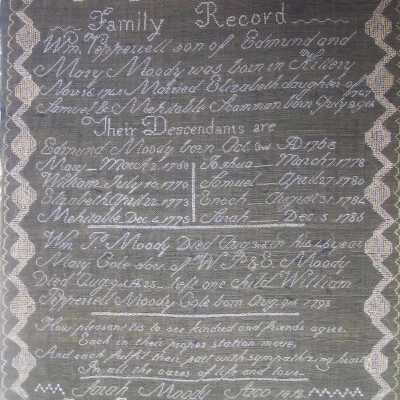 Family Record
Wm Pepperrell son of Edmund and
Mary Moody was born in Kittery
Married Elizabeth daughter of
Samuel & Mehitable Scamman born July
Their Descendants are
Edmund Moody born Oct. AD 1768
Mary March 2. 1769 Joshua March 7. 1778
William July 10. 1770 Samuel April 27. 1780
Elizabeth April 22. 1773 Enoch August 31. 1782
Mehitable Dec 4. 1775 Sarah Dec. 15 1786
Wm P. Moody Died Aug in his year
Mary Cole daur. of W. P. & E. Moody
Died Aug left one child William
Pepperell Moody Cole born Aug. 1795
How pleasant tis to see kindred and friends agree
Each in their proper station move
And each fulfil their part with sympathizing heart
In all the cares of life and love
Sarah Moody